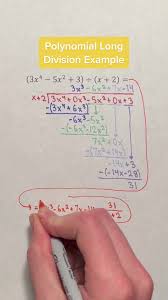 Polynomial Long
Division Example
(3x⁴ - 5x² + 3) ÷ (x + 2) =
3x³ - 6x² + 7x - 14
x+2 3x⁴ + 0x³ - 5x² + 0x + 3
-(3x⁴ + 6x³)
-6x³ - 5x²
-(-6x³ - 12x²)
7x² + 0x
-(7x² + 14x)
-14x + 3
-(-14x - 28)
31